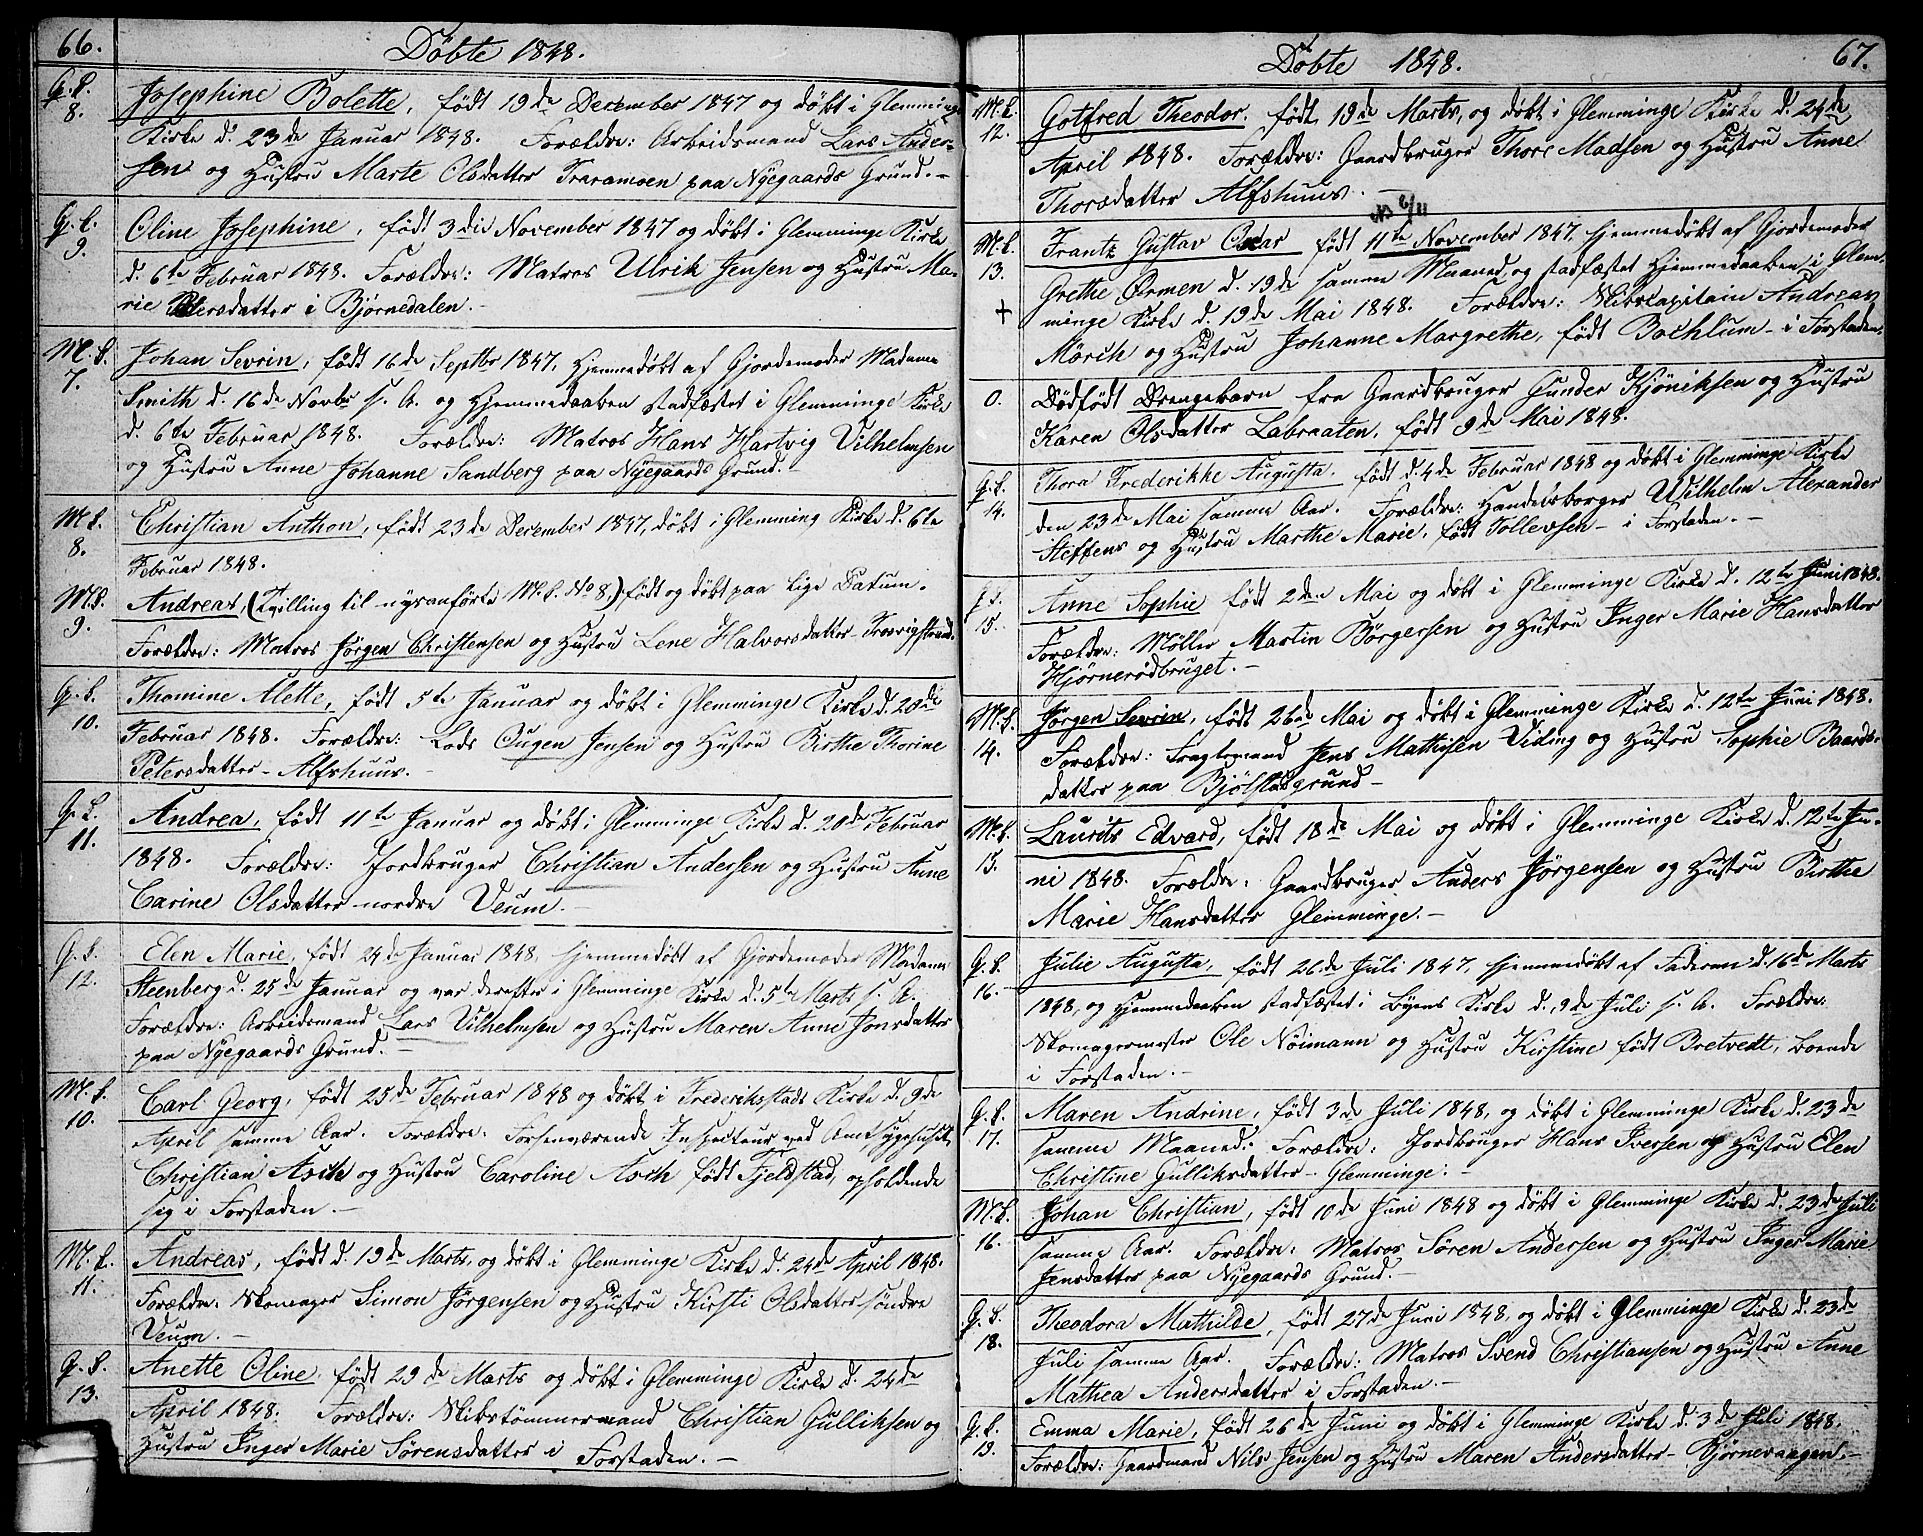 66.
Döbte 1848.
G. L. 8. Josephine Bolette, født 19de December 1847 og døbt i Glemminge
Kirke d. 23de Januar 1848. Forældre: Arbeidsmand Lars Ander-
sen og Hustru Marte Olsdatter Traramoen paa Nyegaards Grund.-
G. L. 9. Oline Josephine, født 3die November 1847 og døbt i Glemminge Kirke
d. 6te Februar 1848. Forældre: Matros Ulrik Jensen og Hustru Ma-
rie Petersdatter i Bjørnedalen.-
M. L. 7. Johan Sevrin, født 16de Septbr 1847, Hjemmedøbt af Gjordemoder Madame
Smith d. 16de Novbr s. A. og Hjemmedaaben stadfæstet i Glemminge Kirke
d. 6te Februar 1848. Forældre: Matros Hans Hartvig Vilhelmsen
og Hustru Anne Johanne Sandberg paa Nyegaards Grund.-
M. L. 8. Christian Anthon, født 23de December 1847, døbt i Glemming Kirke d. 6te
Februar 1848.
M. L. 9. Andreas, (Tvilling til nysanførte M. L. No 8,) født og døbt paa lige Datum.
Forældre: Matros Jörgen Christensen og Hustru Lene Halvorsdatter Trosvigstrand.
G. L. 10. Thomine Alette, født 5te Januar og døbt i Glemminge Kirke d. 20de
Februar 1848. Forældre: Lods Eugen Jensen og Hustru Birthe Thorine
Petersdatter - Alfshuus.-
G. L. 11. Andrea, født 11te Januar og døbt i Glemminge Kirke d. 20de Februar
1848. Forældre: Jordbruger Christian Andersen og Hustru Anne
Carine Olsdatter nordre Veum.-
G. L. 12. Elen Marie, født 24de Januar 1848, hjemmedøbt af Gjordemoder Madame
Steenberg d. 25de Januar og var derefter i Glemminge Kirke d. 5te Marts s. A.
Forældre: Arbeidsmand Lars Vilhelmsen og Hustru Maren Anne Jonsdatter
paa Nyegaards Grund.-
M. L. 10. Carl Georg, født 25de Februar 1848 og døbt i Frederiksstads Kirke d. 9de
April samme Aar. Forældre: Forhenværende Inspecteur ved Amtssygehuset,
Christian Asch og Hustru Caroline Asch født Fjeldstad, opholdende
sig i Forstaden.-
M. L. 11. Andreas, født d. 19de Marts, og døbt i Glemminge Kirke d. 24de April 1848.
Forældre: Skomager Simon Jørgensen og Hustru Kirsti Olsdatter söndre
Veum.-
G. L. 13. Anette Oline, født 29de Marts og døbt i Glemminge Kirke d. 24de
April 1848. Forældre: Skibstömmermand Christian Gulliksen og
Hustru Inger Marie Sörensdatter i Forstaden.-
67.
Döbte 1848.
M. L. 12. Gotfred Theodor, født 19de Marts, og døbt i Glemminge Kirke d. 24de
April 1848. Forældre: Gaardbruger Thore Madsen og Hustru Anne
Thorsdatter Alfshuus.
6/11
M. L. 13. Frantz Gustav Oscar født 11te November 1847, hjemmedøbt af Gjordemoder
Grethe Ormen d. 19de samme Maaned og stadfæstet Hjemmedaaben i Glem-
+ minge Kirke d. 19de Mai 1848. Forældre: Skibscapitain Andreas
Mörch og Hustru Johanne Margrethe, født Bochlum - i Forstaden.
0. Dødfødt Drengebarn fra Gaardbruger Gunder Kjöniksen og Hustru
Karen Olsdatter Labraaten, født 9de Mai 1848.
G. L. 14. Thora Frederikke Augusta, født d. 4de Februar 1848 og døbt i Glemminge Kirke
den 23de Mai samme Aar. Forældre: Handelsborger Wilhelm Alexander
Steffens og Hustru Marthe Marie, født Tollevsen - i Forstaden.-
G L. 15. Anne Sophie født 2den Mai og døbt i Glemminge Kirke d. 12te Juni 1848.
Forældre: Möller Martin Börgersen og Hustru Inger Marie Hansdatter
Hjørnerødbruget.-
M. L. 14. Jørgen Sevrin, født 26de Mai og døbt i Glemminge Kirke d. 12te Juni 1848.
Forældre: Fragtemand Jens Mathisen Viding og Hustru Sophie Baards-
datter paa Bjølstadgrund-
M. L. 15. Laurits Edvard, født 18de Mai og døbt i Glemminge Kirke d. 12te Ju-
ni 1848. Forældre: Gaardbruger Anders Jörgensen og Hustru Birthe
Marie Hansdatter Glemminge.-
G. L. 16. Julie Augusta, født 26de Juli 1847, hjemmedøbt af Faderen d. 16de Marts
1848, og Hjemmedaaben stadfæstet i Byens Kirke d. 9de Juli s. A. Forældre:
Skomagermester Ole Nöimann og Hustru Kirstine født Bretvedt, boende
i Forstaden.-
G. L. 17. Maren Andrine, født 3de Juli 1848, og døbt i Glemminge Kirke d. 23de
samme Maaned. Forældre: Jordbruger Hans Iversen og Hustru Elen
Christine Gulliksdatter - Glemminge.-
M. L. 16. Johan Christian, født 10de Juni 1848 og døbt i Glemminge Kirke d. 23de Juli
samme Aar. Forældre: Matros Sören Andersen og Hustru Inger Marie
Jensdatter paa Nyegaards Grund.-
G. L. 18. Theodora Mathilde, født 27de Juni 1848, og døbt i Glemminge Kirke d. 23de
Juli samme Aar. Forældre: Matros Svend Christiansen og Hustru Anne
Mathea Andersdatter i Forstaden.-
G. L. 19. Emma Marie, født 26de Juni og døbt i Glemminge Kirke d. 3de Juli 1848.
Forældre: Gaardmand Nils Jensen og Hustru Maren Andersdatter - Kjørnevaagen.-